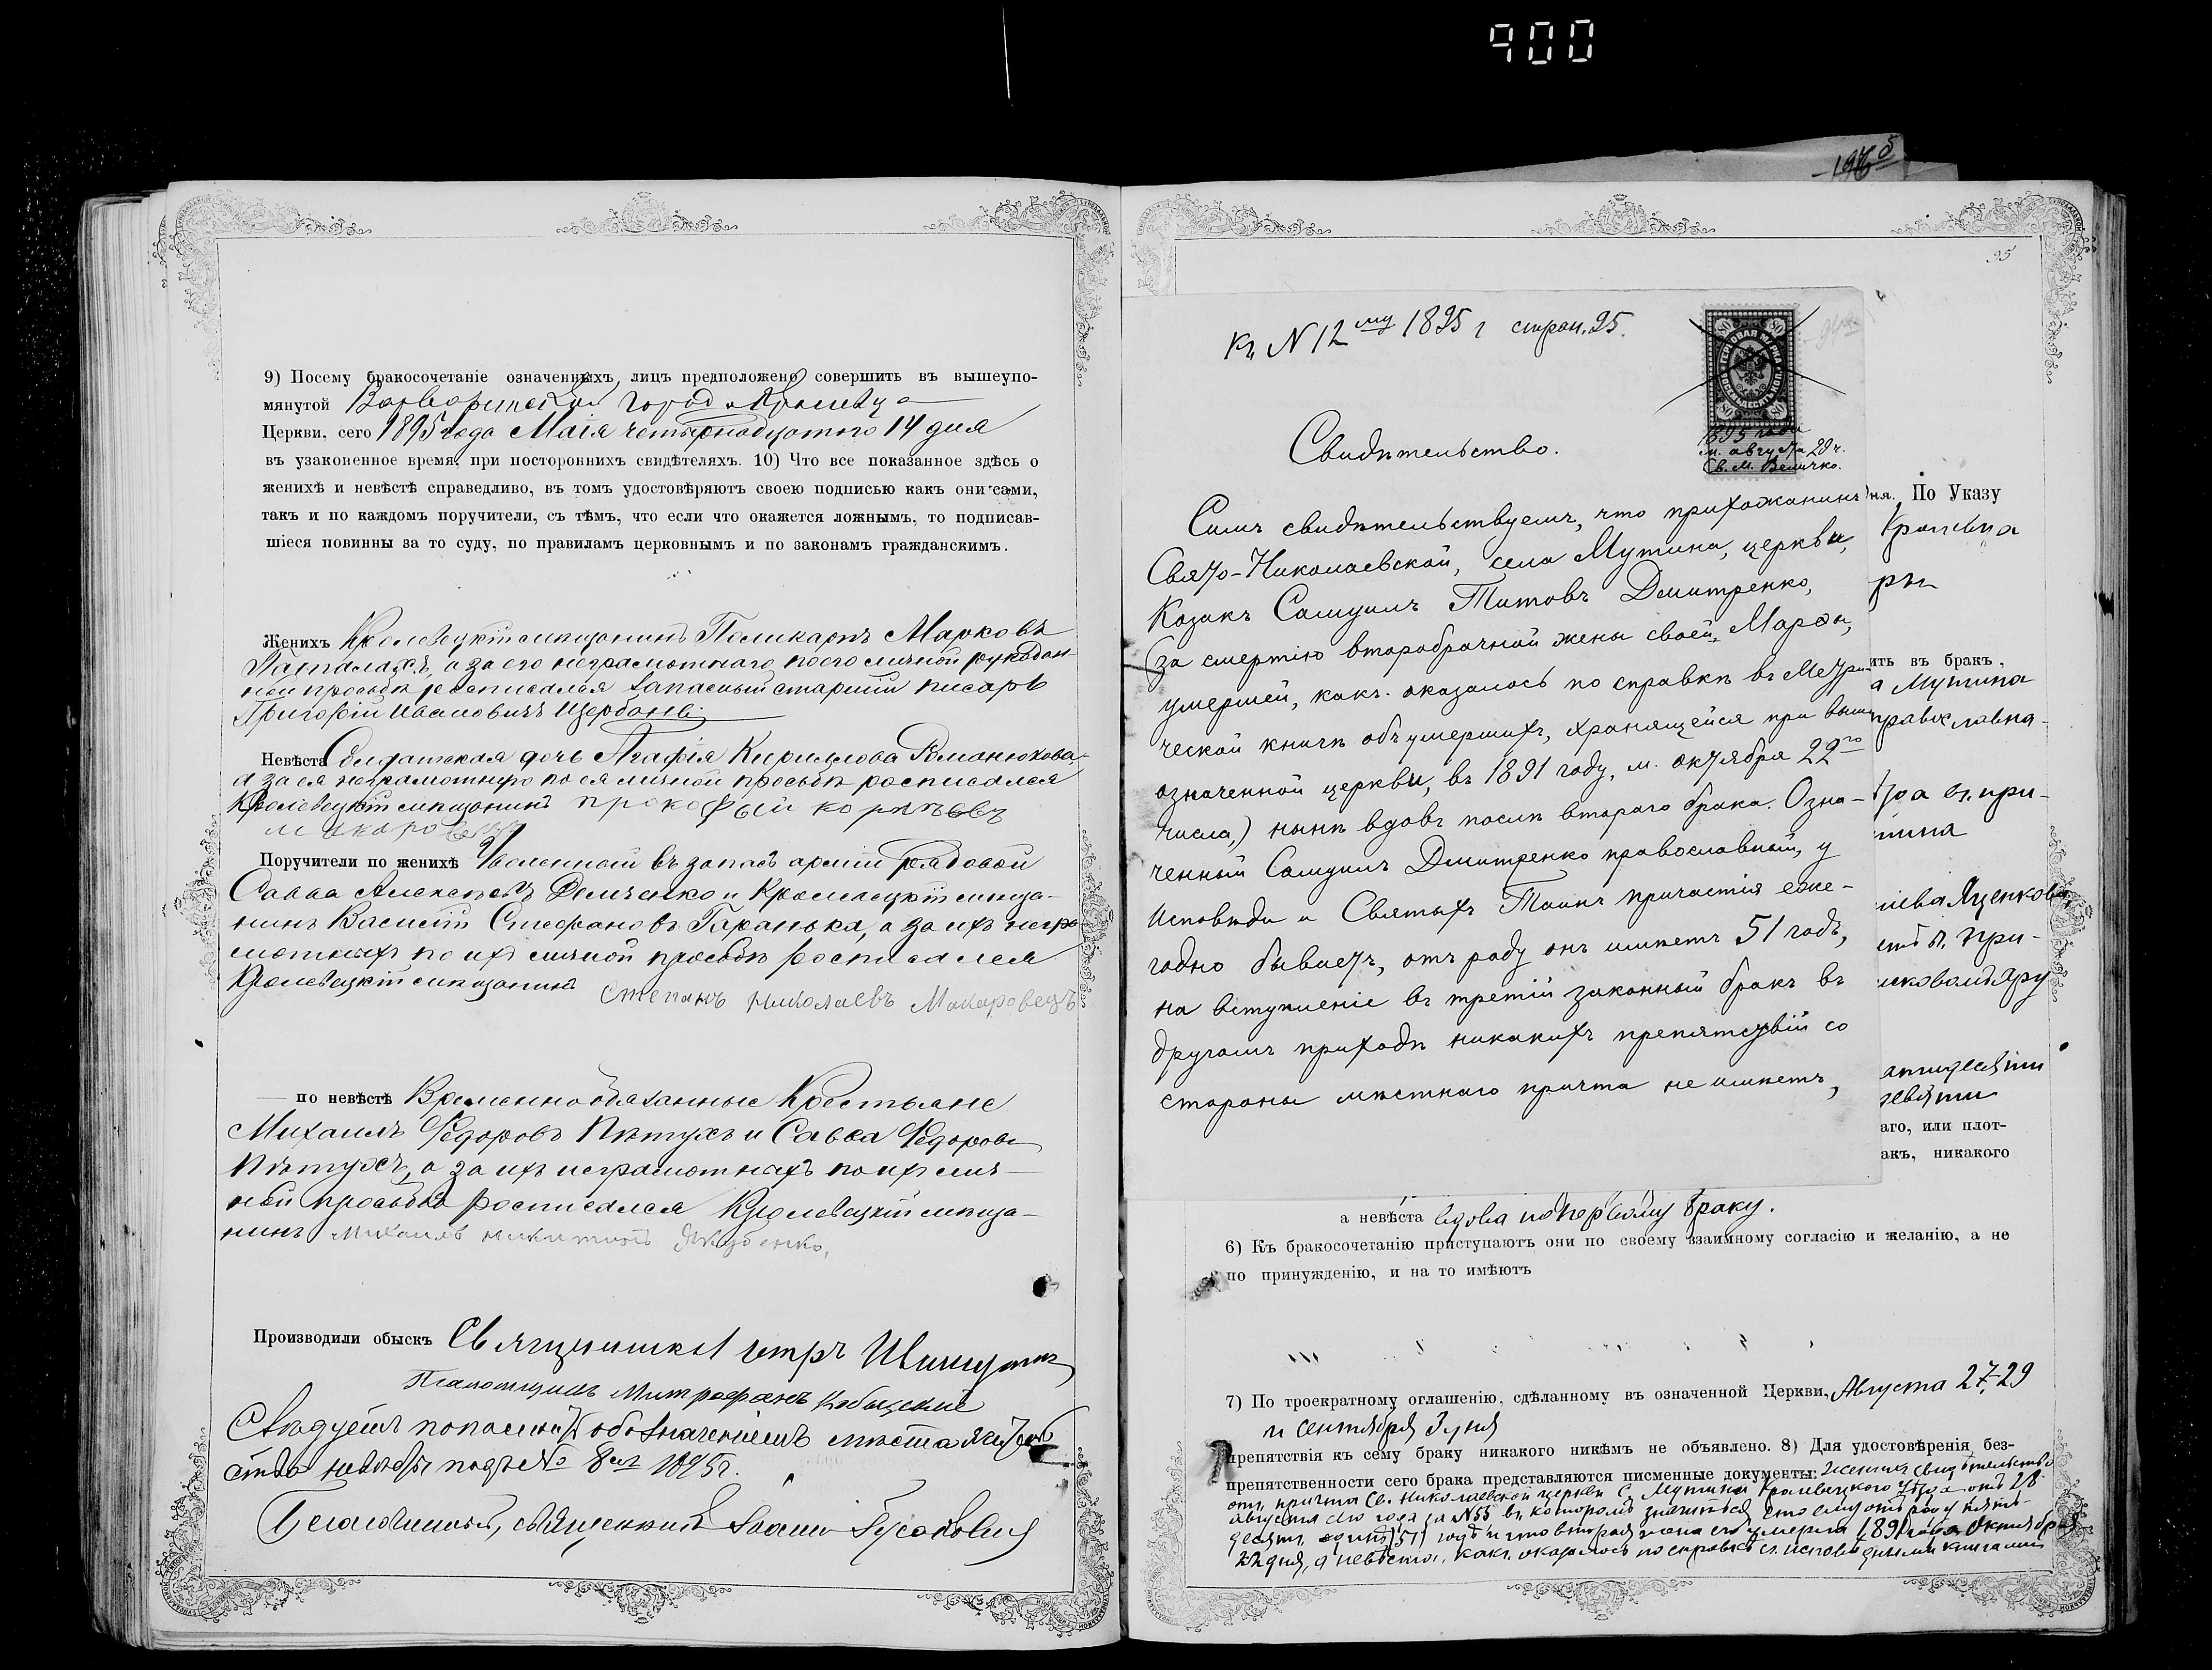 900
1976
9) Посему бракосочетаніе означенныхъ лицъ предположено совершить въ вышеупо-
мянутой Варваринской город Кролевца
Церкви, сего 1895 года Маія четырнадцатого 14 дня
въ узаконенное время, при постороннихъ свидѣтеляхъ. 10) Что все показанное здѣсь о
женихѣ и невѣстѣ справедливо, въ томъ удостовѣряютъ своею подписью какъ они сами,
такъ и по каждомъ поручители, съ тѣмъ, что если что окажется ложнымъ, то подписав-
шіеся повинны за то суду, по правиламъ церковнымъ и по законамъ гражданскимъ.
Женихъ Кролевецкій мѣщанинъ Поликарпъ Марковъ
а за его неграмотнаго по его личной рукодан
ной просьбѣ росписался запасный старшій писарь
Григорій Ивановичъ Щербань
Невѣста Солдатская дочь Агафія Кириллова Романюкова
а за ея неграмотную по ея личной просьбѣ росписался
Кролевецкій мѣщанинъ прокофый корнѣевъ
макаровецъ
Поручители по женихѣ Уволенный въ запасъ арміи рядовой
Савва Алексѣевъ Демченко и Кролевецкій мѣща-
нинъ Василій Стефановъ Гаранька, а за ихъ негра
мотныхъ по ихъ личной просьбѣ росписался
Кролевецкій мѣщанинъ Степанъ Николаевъ Макаровецъ
по невѣстѣ Временнообязанные Крестьяне
Михаилъ Федоровъ Пѣтухъ и Савва Федоровъ
Пѣтухъ, а за ихъ неграмотныхъ по ихъ лич
ной просьбѣ росписался Кролевецкій мѣща-
нинъ Михаилъ никитинъ
Производили обыскъ Священникъ Петръ
Псаломщикъ Митрофанъ
Слѣдуетъ обозначеніемъ мѣста
невѣсты подъ № 8мъ 1895 г.
Благочинный, священникъ
95
Къ N 12му 1895 г стран. 95.
80 80
ГЕРБОВАЯ МАРКА
ВОСЕМЬДЕСЯТЪ КОП.
80 80
1895 года
м. августа 29 ч.
Св. М. Величко.
Свидѣтельство.
Симъ свидѣтельствуемъ, что прихожанинъ
Свято-Николаевской, села Мутина, церкви,
Козакъ Самуилъ Титовъ Дмитренко,
(за смертію второбрачной жены своей, Марфы,
умершей, какъ оказалось по справкѣ въ Метри-
ческой книгѣ объ умершихъ, хранящейся при выше
означенной церкви, въ 1891 году, м. октября 22го
числа,) нынѣ вдовъ послѣ втораго брака. Озна-
ченный Самуилъ Дмитренко православный, у
Исповѣди и Святыхъ Таинъ причастія еже-
годно бываетъ, отъ роду онъ имѣетъ 51 годъ,
на вступленіе въ третій законный бракъ въ
другомъ приходѣ никакихъ препятствій со
стороны мѣстнаго причта не имѣетъ,
ня. По Указу
Кролевца
ры
ить въ бракъ,
а Мутина
православна-
при-
тина
Яценкова
при-
атидесяти
девяти
аго, или плот-
акъ, никакого
а невѣста вдова по первому браку.
6) Къ бракосочетанію приступаютъ они по своему взаимному согласію и желанію, а не
по принужденію, и на то имѣютъ
7) По троекратному оглашенію, сдѣланному въ означенной Церкви, Августа 27, 29
и сентября 3 дня
препятствія къ сему браку никакого никѣмъ не объявлено. 8) Для удостовѣренія без-
препятственности сего брака представляются писменные документы: жениха свидѣтельство
отъ причта Св. Николаевской церкви с. Мутина Кролевецкого уѣзда отъ 28
августа сего года за №55 въ которомъ значится что ему отъ роду пять-
десятъ одинъ (51) годъ и что вторая жена его умерла 1891 года Октября
22 дня, а невѣсты, какъ оказалось по справкѣ съ исповѣдными книгами